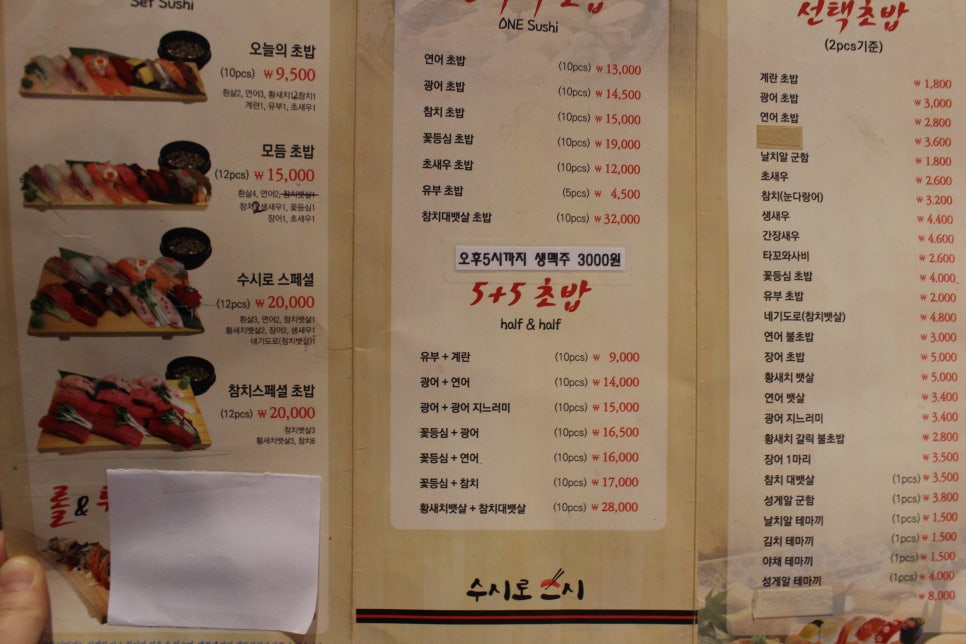 Set Sushi
오늘의 초밥
(10pcs) ₩9,500
흰살2, 연어3, 황새치1, 참치1
계란1, 유부1, 초새우1
모듬 초밥
(12pcs) ₩15,000
흰살4, 연어2, 참치뱃살1
참치2, 생새우1, 꽃등심1
장어1, 초새우1
수시로 스페셜
(12pcs) ₩20,000
흰살3, 연어2, 참치뱃살1
황새치뱃살2, 장어2, 생새우1
네기도로(참치뱃살)1
참치스페셜 초밥
(12pcs) ₩20,000
참치뱃살3
황새치뱃살3, 참치6
롤 &
ONE Sushi
연어 초밥 (10pcs) ₩13,000
광어 초밥 (10pcs) ₩14,500
참치 초밥 (10pcs) ₩15,000
꽃등심 초밥 (10pcs) ₩19,000
초새우 초밥 (10pcs) ₩12,000
유부 초밥 (5pcs) ₩4,500
참치대뱃살 초밥 (10pcs) ₩32,000
오후5시까지 생맥주 3000원
5+5 초밥
half & half
유부 + 계란 (10pcs) ₩9,000
광어 + 연어 (10pcs) ₩14,000
광어 + 광어 지느러미 (10pcs) ₩15,000
꽃등심 + 광어 (10pcs) ₩16,500
꽃등심 + 연어 (10pcs) ₩16,000
꽃등심 + 참치 (10pcs) ₩17,000
황새치뱃살 + 참치대뱃살 (10pcs) ₩28,000
수시로 스시
선택초밥
(2pcs기준)
계란 초밥 ₩1,800
광어 초밥 ₩3,000
연어 초밥 ₩2,800
₩3,600
날치알 군함 ₩1,800
초새우 ₩2,600
참치(눈다랑어) ₩3,200
생새우 ₩4,400
간장새우 ₩4,600
타꼬와사비 ₩2,600
꽃등심 초밥 ₩4,000
유부 초밥 ₩2,000
네기도로(참치뱃살) ₩4,800
연어 불초밥 ₩3,000
장어 초밥 ₩5,000
황새치 뱃살 ₩5,000
연어 뱃살 ₩3,400
광어 지느러미 ₩3,400
황새치 갈릭 불초밥 ₩2,800
장어 1마리 ₩3,500
참치 대뱃살 (1pcs) ₩3,500
성게알 군함 (1pcs) ₩3,800
날치알 테마끼 (1pcs) ₩1,500
김치 테마끼 (1pcs) ₩1,500
야채 테마끼 (1pcs) ₩1,500
성게알 테마끼 (1pcs) ₩4,000
₩8,000